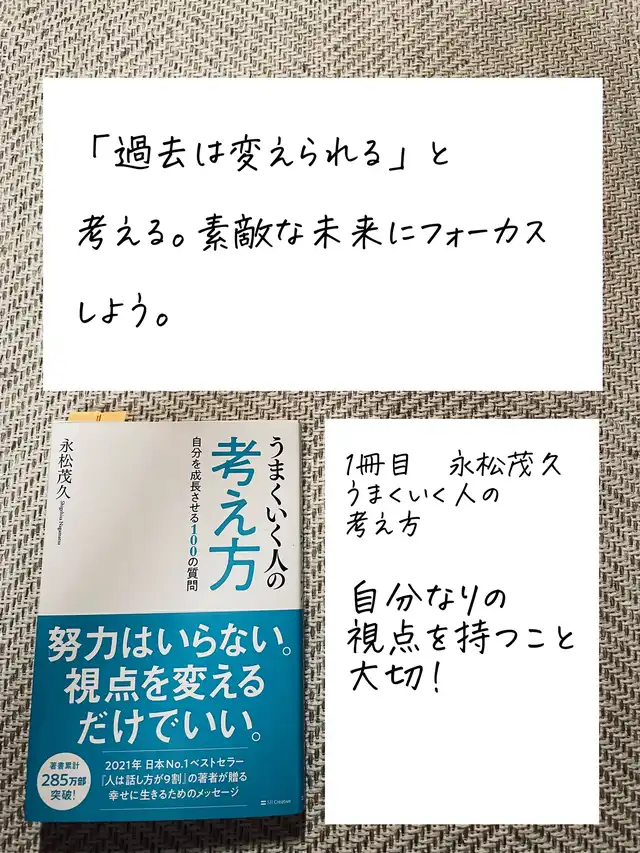 「過去は変えられる」と
考える。素敵な未来にフォーカス
しよう。
うまくいく人の
考え方
自分を成長させる100の質問
永松茂久
Shigehisa Nagamatsu
努力はいらない。
視点を変える
だけでいい。
著書累計
285万部
突破!
2021年 日本No.1ベストセラー
『人は話し方が9割』の著者が贈る
幸せに生きるためのメッセージ
SB Creative
1冊目 永松茂久
うまくいく人の
考え方
自分なりの
視点を持つこと
大切!